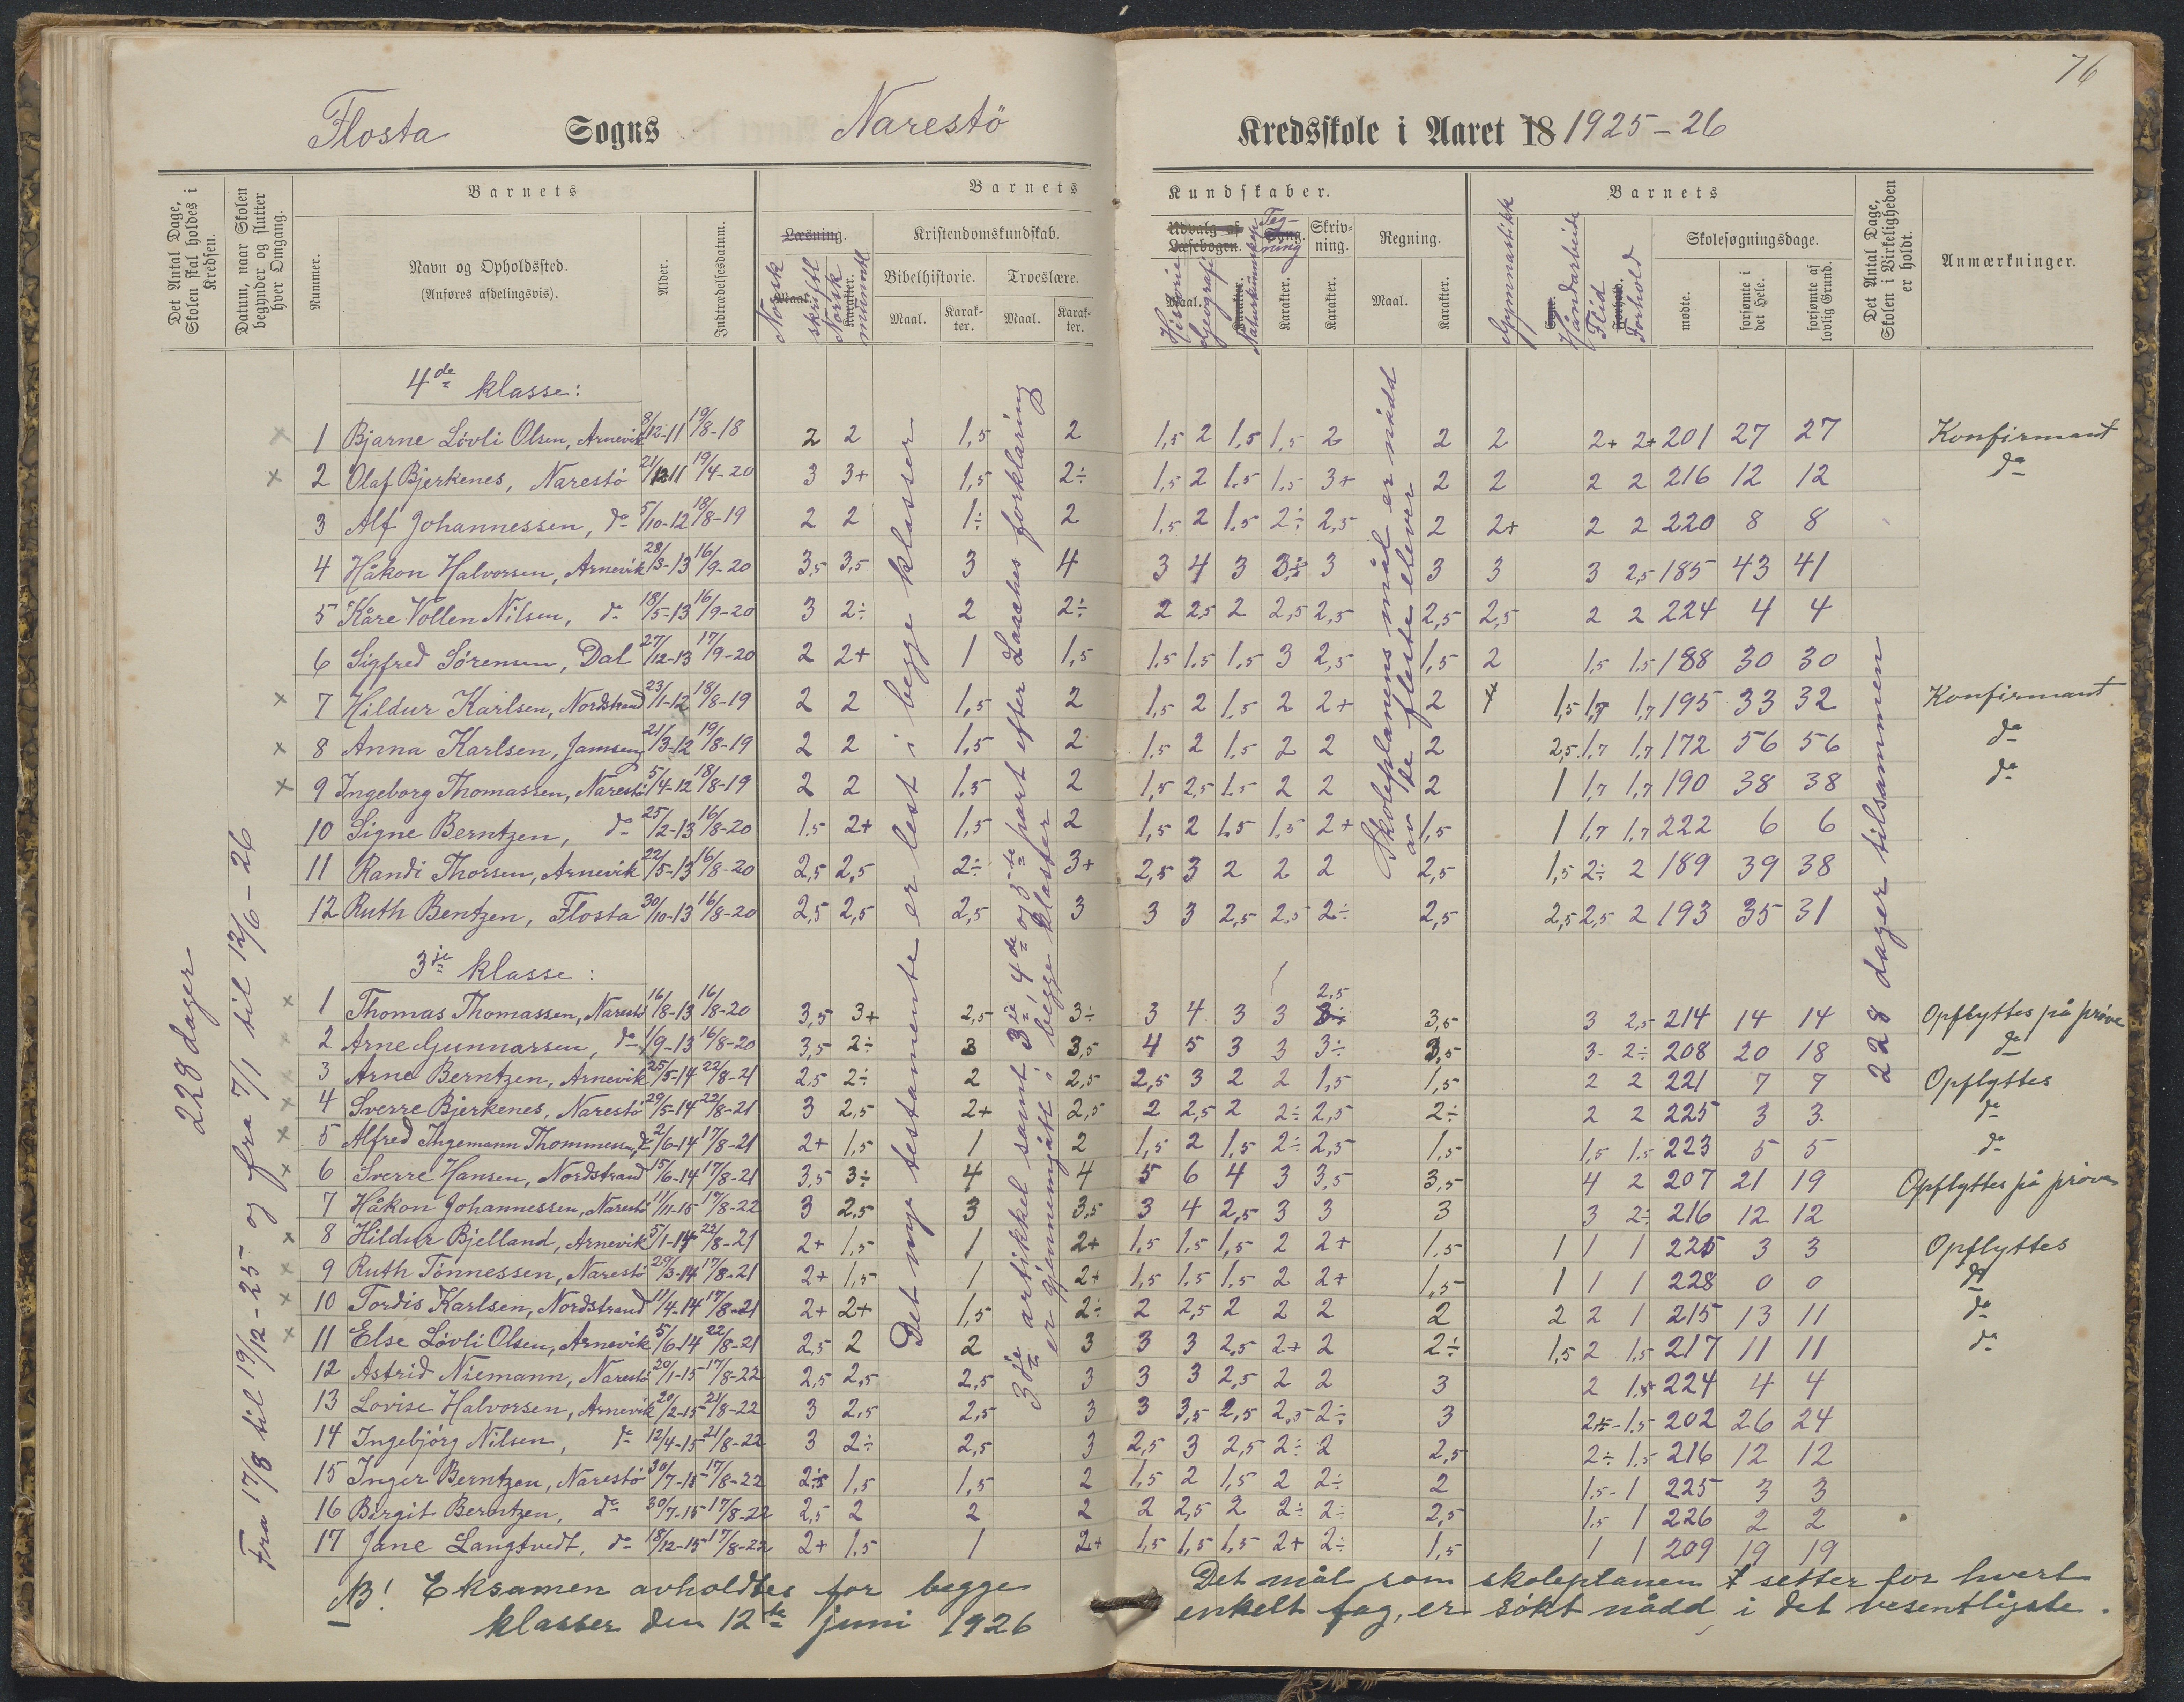 76
Flosta Sogns Narestö Kredsskole i Aaret 18 1925-26
Det Antal Dage, Skolen skal holdes i Kredsen.
Datum, naar Skolen begynder og slutter hver Omgang.
Nummer.
Barnets
Navn og Opholdssted.
(Anføres afdelingsvis).
Alder.
Indtrædelsesdatum.
Barnets Kundskaber.
Læsning.
Maal.
Karakter.
Norsk skriftl
Norsk mundtl
Kristendomskundskab.
Bibelhistorie.
Maal.
Karakter.
Troeslære.
Maal.
Karakter.
Udvalg af Læsebogen.
Maal.
Karakter.
Historie
Geografi
Naturkunnskap
Sang.
Tegning
Karakter.
Skrivning.
Karakter.
Regning.
Maal.
Karakter.
Barnets
Gymnastikk
Håndarbeide
Flid
Forhold.
Forhold
Skolesøgningsdage.
mødte.
forsømte i det Hele.
forsømte af lovlig Grund.
Det Antal Dage, Skolen i Virkeligheden er holdt.
Anmærkninger.
228 dager
Fra 17/8 til 19/12-25 og fra 7/1 til 12/6-26
Det nye testamente er lest i begge klasser
3dje artikkel samt 3je, 4de og 5te part efter Laaches forklaring
er gjennemgått i begge klasser
Skoleplanens mål er nådd
av de fleste elever
228 dager tilsammen
4de klasse:
x 1 Bjarne Lövli Olsen, Arnevik 8/12-11 19/8-18 2 2 1,5 2 1,5 2 1,5 1,5 2 2 2 2+ 2+ 201 27 27 Konfirmant
x 2 Olaf Bjerkenes, Narestö 21/12-11 19/4-20 3 3+ 1,5 2÷ 1,5 2 1.5 1.5 3+ 2 2 2 2 216 12 12 do
3 Alf Johannessen, do 5/10-12 18/8-19 2 2 1÷ 2 1,5 2 1.5 2÷ 2,5 2 2+ 2 2 220 8 8
4 Håkon Halvorsen, Arnevik 28/3-13 16/9-20 3,5 3,5 3 4 3 4 3 3÷ 3 3 3 3 2,5 185 43 41
5 Kåre Vollen Nilsen, do 18/5-13 16/9-20 3 2÷ 2 2÷ 2 2,5 2 2,5 2,5 2,5 2,5 2 2 224 4 4
6 Sigfred Sörensen, Dal 27/12-13 17/9-20 2 2+ 1 1,5 1.5 1.5 1.5 3 2,5 1,5 2 1.5 1.5 188 30 30
x 7 Hildur Karlsen, Nordstrand 23/1-12 18/8-19 2 2 1,5 2 1.5 2 1.5 2 2+ 2 1,5 1,7 1,7 195 33 32 Konfirmant
x 8 Anna Karlsen, 21/3-12 19/8-19 2 2 1,5 2 1.5 2 1.5 2 2 2 2,5 1.7 1.7 172 56 56 do
x 9 Ingeborg Thomassen, Narestö 5/4-12 18/8-19 2 2 1.5 2 1,5 2,5 1.5 2 2 2 1 1,7 1,7 190 38 38 do
10 Signe Berntzen, do 25/2-13 16/8-20 1.5 2+ 1,5 2 1,5 2 1,5 1,5 2+ 1,5 1 1,7 1.7 222 6 6
11 Randi Thorsen, Arnevik 22/5-13 16/8-20 2,5 2,5 2÷ 3+ 2,5 3 2 2 2 2,5 1,5 2÷ 2 189 39 38
12 Ruth Bentzen, Flosta 30/10-13 16/8-20 2,5 2,5 2,5 3 3 3 2,5 2,5 2÷ 2,5 2,5 2,5 2 193 35 31
3je klasse:
x 1 Thomas Thomassen, Narestö 16/8-13 16/8-20 3,5 3+ 2,5 3÷ 3 4 3 3 2.5 3,5 3 2,5 214 14 14 Opflyttes på prøve
x 2 Arne Gunnarsen, do 1/9-13 16/8-20 3,5 2÷ 3 3,5 4 5 3 3 3÷ 3,5 3 2÷ 208 20 18 do
x 3 Arne Berntzen, Arnevik 25/5-14 22/8-21 2,5 2÷ 2 2,5 2,5 3 2 2 1,5 1,5 2 2 221 7 7 Opflyttes
x 4 Sverre Bjerkenes, Narestö 29/5-14 22/8-21 3 2,5 2+ 2,5 2 2,5 2 2÷ 2,5 2÷ 2 2 225 3 3 do
x 5 Alfred Ingemann Thommesen, do 2/6-14 17/8-21 2+ 1,5 1 2 1,5 2 1,5 2÷ 2,5 1,5 1,5 1.5 223 5 5 do
x 6 Sverre Hansen, Nordstrand 15/6-14 17/8-21 3,5 3÷ 4 4 5 6 4 3 3,5 3,5 4 2 207 21 19 Opflyttes på prøve
7 Håkon Johannessen, Narestö 11/11-15 17/8-22 3 2,5 3 3,5 3 4 2,5 3 3 3 3 2÷ 216 12 12
x 8 Hildur Bjelland, Arnevik 5/1-14 22/8-21 2+ 1,5 1 2+ 1.5 1.5 1,5 2 2+ 1.5 1 1 1 225 3 3 Opflyttes
x 9 Ruth Tönnessen, Narestö 29/3-14 17/8-21 2+ 1,5 1 2+ 1,5 1.5 1.5 2 2+ 1,5 1 1 1 228 0 0 do
x 10 Tordis Karlsen, Nordstrand 11/4-14 17/8-21 2+ 2+ 1,5 2÷ 2 2,5 2 2 2 2 2 2 1 215 13 11 do
x 11 Else Lövli Olsen, Arnevik 5/6-14 22/8-21 2,5 2 2 3 3 3 2,5 2+ 2 2÷ 1,5 2 1,5 217 11 11 do
12 Astrid Niemann, Narestö 20/1-15 17/8-22 2,5 2,5 2,5 3 3 3 2,5 2 2 3 2 1.5 224 4 4
13 Lovise Halvorsen, Arnevik 20/2-15 21/8-22 3 2,5 2,5 3 3 3,5 2,5 2,5 2÷ 3 2÷ 1.5 202 26 24
14 Ingebjörg Nilsen, do 12/4-15 21/8-22 3 2÷ 2,5 3 2,5 3 2,5 2÷ 2 2,5 2÷ 1.5 216 12 12
15 Inger Berntzen, Narestö 30/7-15 17/8-22 1,5 1,5 2 1,5 2 1,5 2 2÷ 2 1,5 1 225 3 3
16 Birgit Berntzen, do 30/7-15 17/8-22 2,5 2 2 2 2 2,5 2 2÷ 2÷ 2,5 1.5 1 226 2 2
17 Jane Langtvedt, do 18/12-15 17/8-22 2+ 1.5 1 2+ 1,5 1,5 1,5 2+ 2÷ 1,5 1 1 209 19 19
NB! Eksamen avholdtes for begge
klasser den 12te juni 1926
Det mål som skoleplanen setter for hvert
enkelt fag, er søkt nådd i det vesentligste.